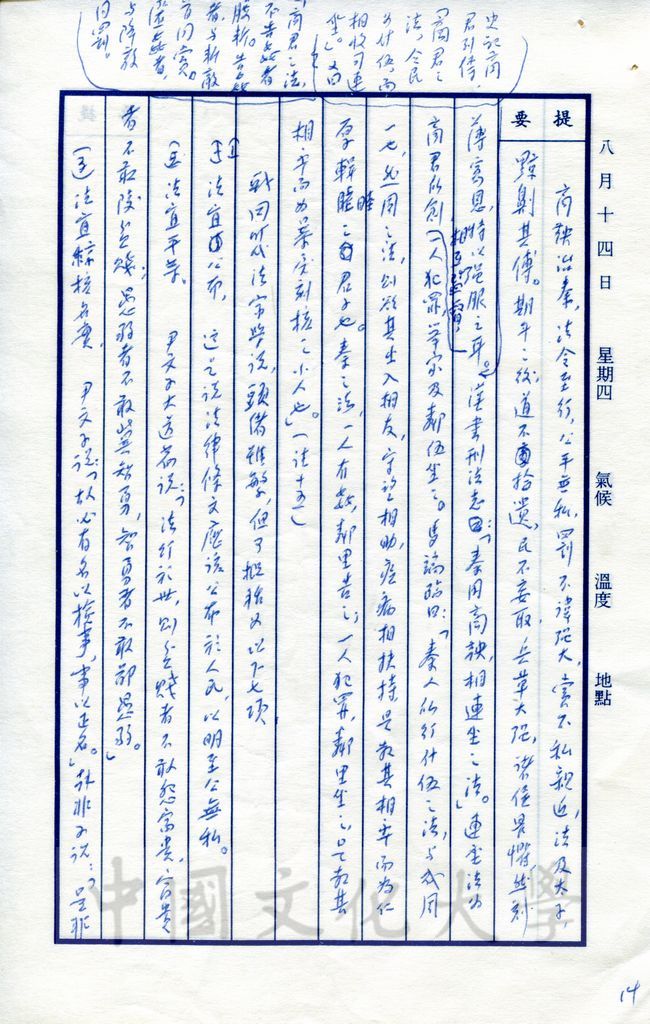 八月十四日 星期四 氣候 溫度 地點
提要
商鞅治秦,法令至行,公平無私,罰不諱強大,賞不私親近,法及太子,
黥劓其傅。期年之後,道不拾遺,民不妄取,兵革大強,諸侯畏懼。然刻
薄寡恩,特以強服之耳。漢書刑法志曰:「秦用商鞅,相連坐之法。」連坐法為
商君所創(一人犯罪,舉家及鄰伍坐之。馬端臨曰:「秦人所行什伍之法,與成周
一也,然周之法,則欲其出入相友,守望相助,疾病相扶持,是教其相率而為仁
厚輯睦之君子也。秦之法,一人有姦,鄰里告之;一人犯罪,鄰里坐之,是教其
相率而為暴戾刻核之小人也。」(註十五)
戰國時代法家學說,頭緒雖繁,但可概括為以下七項
法宜公布, 這是說法律條文應該公布於人民,以明至公無私。
法宜平等。 尹文子大道篇說:「法行於世,則貧賤者不敢怨富貴,富貴
者不敢陵貧賤;愚弱者不敢冀智勇,智勇者不敢鄙愚弱。」
法宜綜核名實, 尹文子說:「故必有名以檢事,事以正名。」韓非子說:「是非
史記商
君列傳:
「商君之
法,令民
為什伍,而
相收司連
坐。」又曰
「商君之法,
不告姦者
腰斬,告姦
者與斬敵
首同賞。
匿姦者
與降敵
同罰。
中國文化大學
14